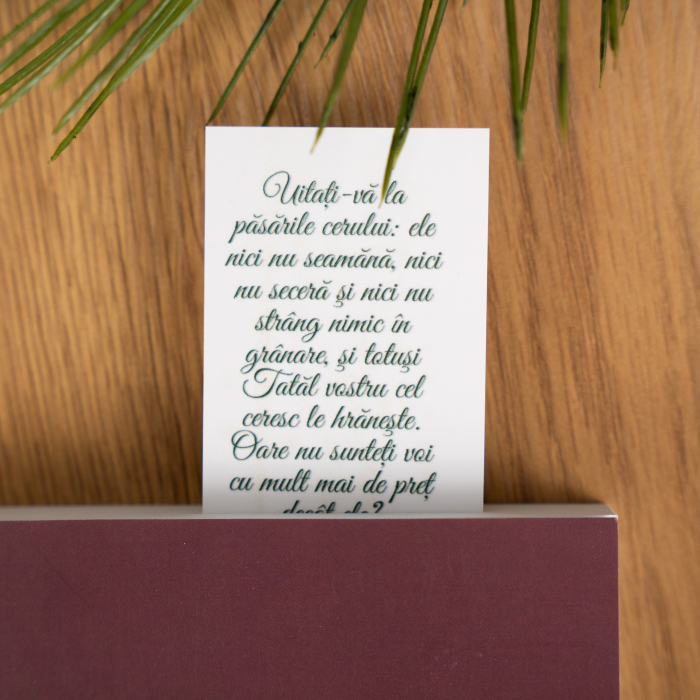 Uitați-vă la
păsările cerului: ele
nici nu seamănă, nici
nu seceră și nici nu
strâng nimic în
grânare, și totuși
Tatăl vostru cel
ceresc le hrănește.
Oare nu sunteți voi
cu mult mai de preț
decât ele?